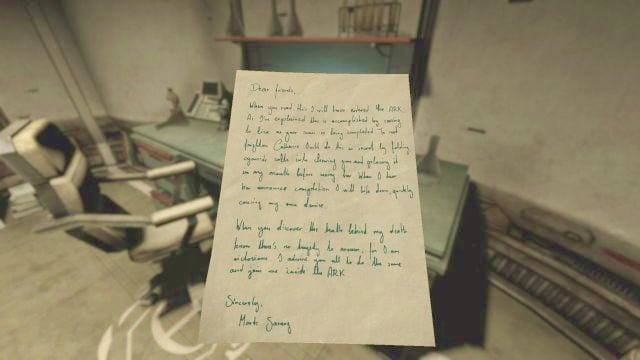 Dear friends,
When you read this I will have entered the ARK.
As I've explained this is accomplished by ceasing
to live as your scan is being completed. To not
frighten Catherine I will do this in secret by folding
cyanide cells into chewing gum and placing it
in my mouth before seeing her. When I hear
her announce completion I will bite down, quickly
causing my own demise.
When you discover the truth behind my death
know there's no tragedy to mourn, for I am
victorious. I advise you all to do the same
and join me inside the ARK.
Sincerely,
Mark Sarang